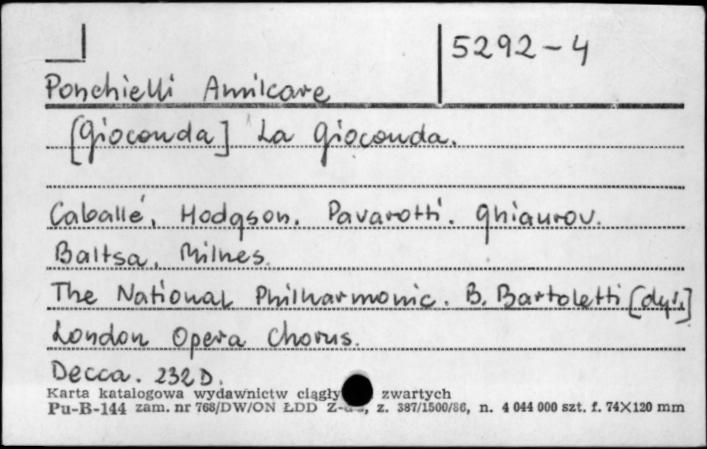 5292-4
Ponchielli Amilcare
[Gioconda] La Gioconda.
Caballé, Hodgson. Pavarotti. Ghiaurov.
Baltsa, Milnes.
The National Philharmonic. B. Bartoletti [dyr.]
London Opera Chorus.
Decca. 232 D.
Karta katalogowa wydawnictw ciągły zwartych
Pu-B-144 zam. nr 768/DW/ON ŁDD z. 387/1500/86, n. 4 044 000 szt. f. 74×120 mm